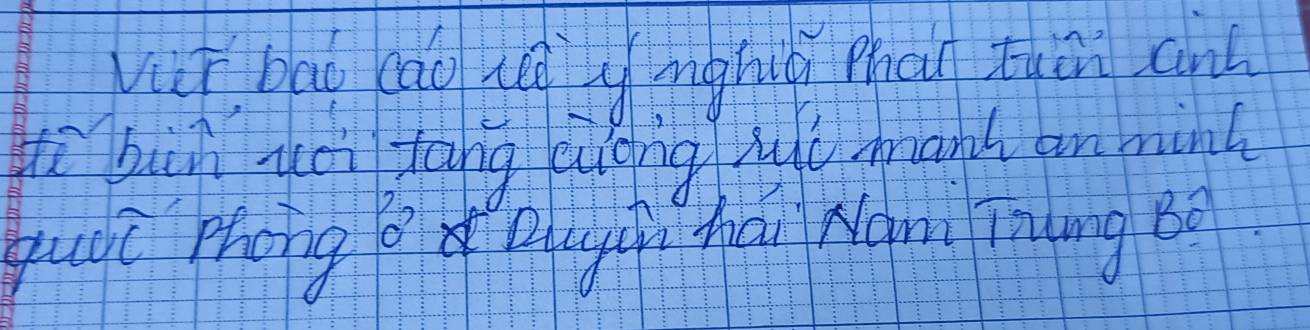 Viết báo cáo về ý nghĩa Phát triển kinh
tế biển với tăng cường sức mạnh an ninh
quốc phòng ở Duyên hải Nam Trung Bộ